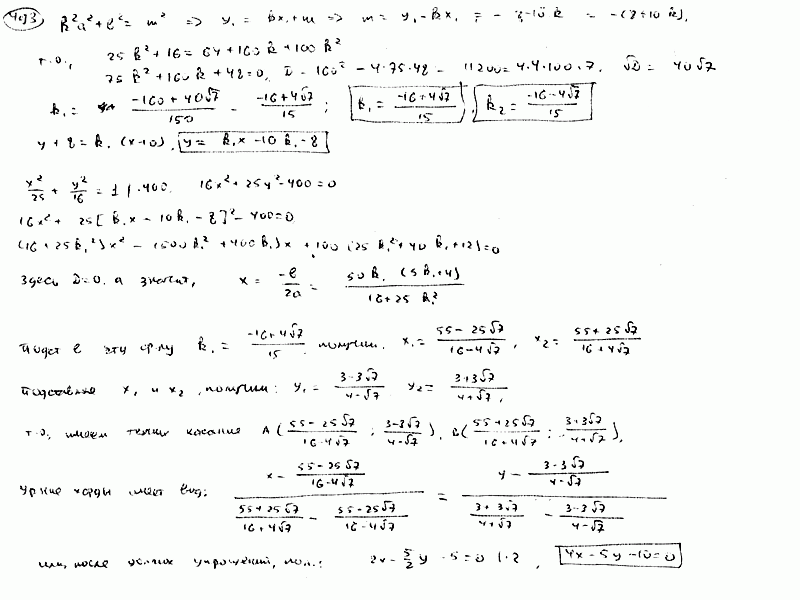 493 k²a² + b² = m² => y₁ = kx₁ + m => m = y₁ - kx₁ = -8 - 10k = -(8+10k),
т.о., 25k² + 16 = 64 + 160k + 100k²
75k² + 160k + 48 = 0, D = 160² - 4·75·48 = 11200 = 4·4·100·7, √D = 40√7
k₁ = (-160+40√7)/150 = (-16+4√7)/15; k₁ = (-16+4√7)/15, k₂ = (-16-4√7)/15
y + 8 = k₁(x-10), y = k₁x - 10k₁ - 8
x²/25 + y²/16 = 1 |·400, 16x² + 25y² - 400 = 0
16x² + 25[k₁x - 10k₁ - 8]² - 400 = 0
(16 + 25k₁²)x² - (500k₁² + 400k₁)x + 100(25k₁² + 40k₁ + 12) = 0
Здесь D=0, а значит, x = -b/2a = 50k₁(5k₁+4)/(16+25k₁²)
Подст в эту ф-лу k₁ = (-16+4√7)/15, получим, x₁ = (55-25√7)/(16-4√7), x₂ = (55+25√7)/(16+4√7)
Подставляя x₁ и x₂, получим: y₁ = (3-3√7)/(4-√7) y₂ = (3+3√7)/(4+√7),
т.о, имеем точки касания A((55-25√7)/(16-4√7); (3-3√7)/(4-√7)), B((55+25√7)/(16+4√7); (3+3√7)/(4+√7)),
Ур-ние хорды имеет вид: (x - (55-25√7)/(16-4√7))/((55+25√7)/(16+4√7) - (55-25√7)/(16-4√7)) = (y - (3-3√7)/(4-√7))/((3+3√7)/(4+√7) - (3-3√7)/(4-√7))
или, после упрощений, пол.: 2x - 5/2 y - 5 = 0 |·2, 4x - 5y - 10 = 0